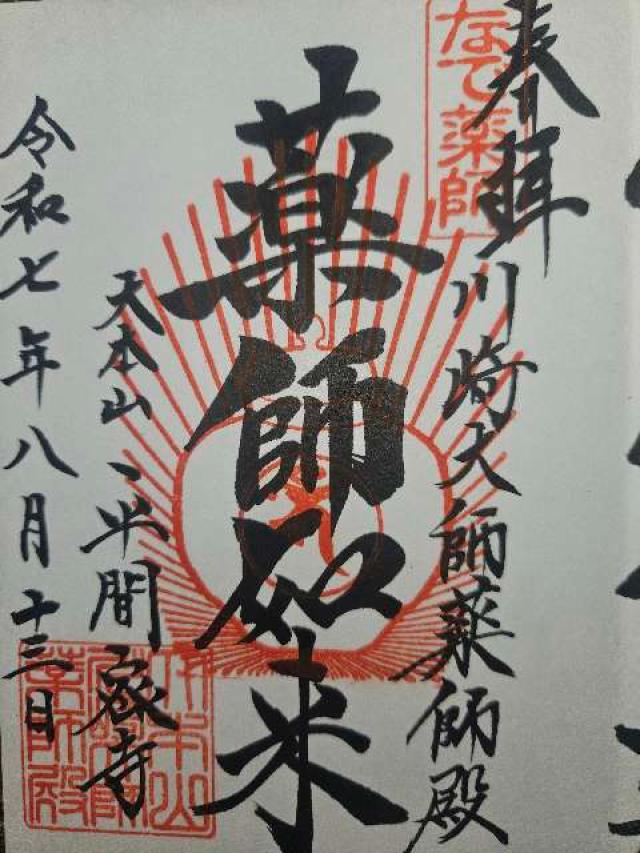 奉拝
なで薬師
川崎大師薬師殿
薬師如来
天本山
平間寺
令和七年八月十三日
薬師殿